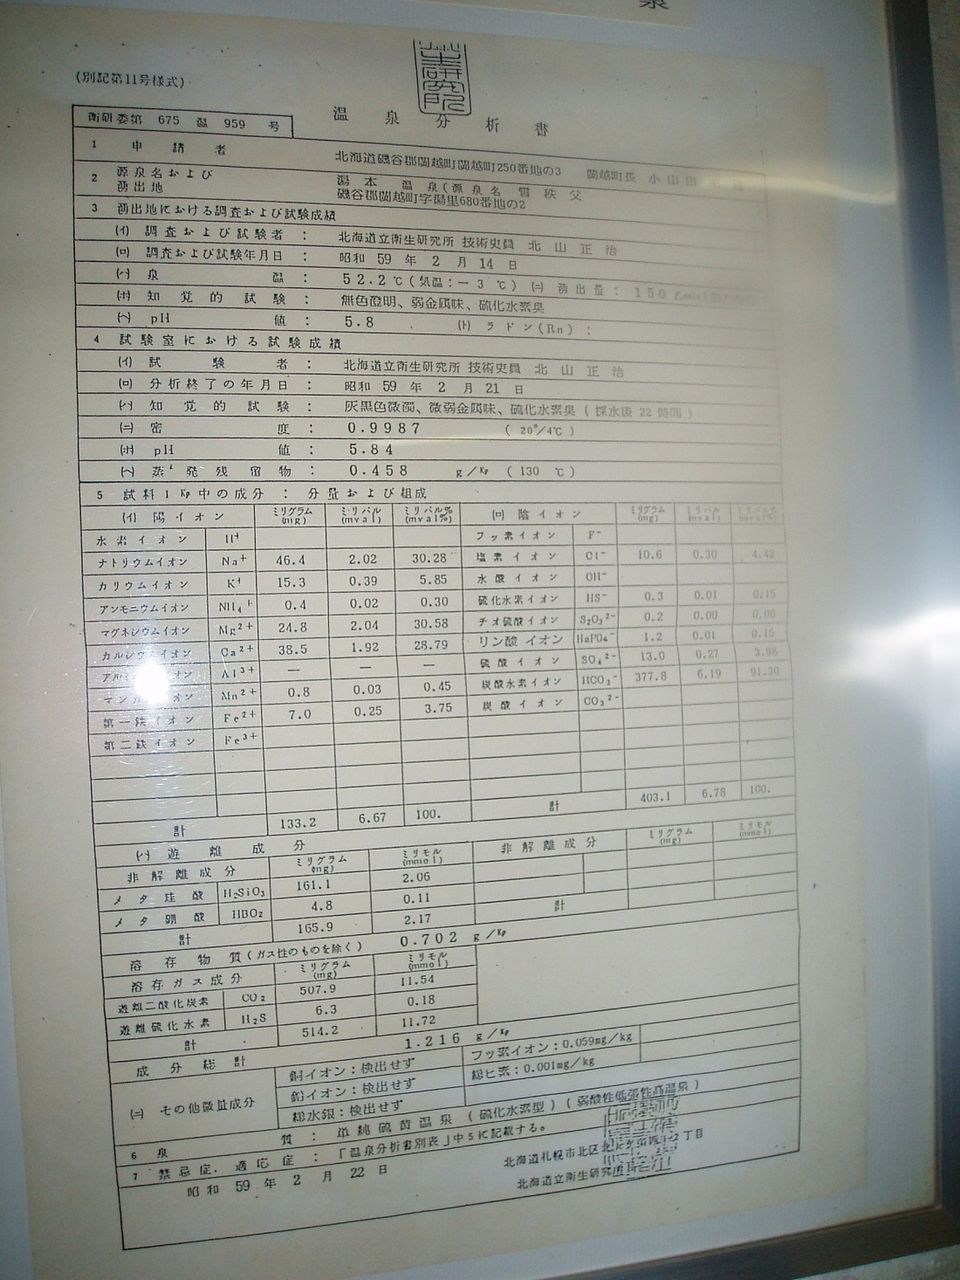 泉
(別記第11号様式)
研究所
衛研委第 675 温 959 号
温泉分析書
1 申請者 北海道磯谷郡蘭越町蘭越町250番地の3 蘭越町長 小山田
2 源泉名および湧出地 湯本温泉(源泉名 雪秩父
磯谷郡蘭越町字湯里680番地の2
3 湧出地における調査および試験成績
(イ) 調査および試験者: 北海道立衛生研究所 技術吏員 北山正治
(ロ) 調査および試験年月日: 昭和59年2月14日
(ハ) 泉温: 52.2℃(気温:-3℃) (ニ) 湧出量: 150
(ホ) 知覚的試験: 無色澄明、弱金属味、硫化水素臭
(ヘ) pH値: 5.8 (ト) ラドン(Rn):
4 試験室における試験成績
(イ) 試験者: 北海道立衛生研究所 技術吏員 北山正治
(ロ) 分析終了の年月日: 昭和59年2月21日
(ハ) 知覚的試験: 灰黒色微濁、微弱金属味、硫化水素臭(採水後22時間)
(ニ) 密度: 0.9987 (20°/4℃)
(ホ) pH値: 5.84
(ヘ) 蒸発残留物: 0.458 g/Kg (130 ℃)
5 試料1Kg中の成分: 分量および組成
(イ) 陽イオン ミリグラム(mg) ミリバル(mval) ミリバル%(mval%) (ロ) 陰イオン ミリグラム(mg) ミリバル(mval) ミリバル%(mval%)
水素イオン H+ フッ素イオン F-
ナトリウムイオン Na+ 46.4 2.02 30.28 塩素イオン Cl- 10.6 0.30 4.42
カリウムイオン K+ 15.3 0.39 5.85 水酸イオン OH-
アンモニウムイオン NH4+ 0.4 0.02 0.30 硫化水素イオン HS- 0.3 0.01 0.15
マグネシウムイオン Mg2+ 24.8 2.04 30.58 チオ硫酸イオン S2O3 2- 0.2 0.00 0.00
カルシウムイオン Ca2+ 38.5 1.92 28.79 リン酸イオン H2PO4- 1.2 0.01 0.15
アル イオン Al3+ — — — 硫酸イオン SO4 2- 13.0 0.27 3.98
マンガンイオン Mn2+ 0.8 0.03 0.45 炭酸水素イオン HCO3- 377.8 6.19 91.30
第一鉄イオン Fe2+ 7.0 0.25 3.75 炭酸イオン CO3 2-
第二鉄イオン Fe3+
計 133.2 6.67 100. 計 403.1 6.78 100.
(ハ) 遊離成分
非解離成分 ミリグラム(mg) ミリモル(mmol) 非解離成分 ミリグラム(mg) ミリモル(mmol)
メタ珪酸 H2SiO3 161.1 2.06
メタ硼酸 HBO2 4.8 0.11
計 165.9 2.17 計
溶存物質(ガス性のものを除く) 0.702 g/Kg
溶存ガス成分 ミリグラム(mg) ミリモル(mmol)
遊離二酸化炭素 CO2 507.9 11.54
遊離硫化水素 H2S 6.3 0.18
計 514.2 11.72
成分総計 1.216 g/Kg
(ニ) その他微量成分 銅イオン:検出せず フッ素イオン:0.059mg/kg
鉛イオン:検出せず 総ヒ素:0.001mg/kg
総水銀:検出せず
6 泉質: 単純硫黄温泉(硫化水素型)(弱酸性低張性高温泉)
7 禁忌症、適応症: 「温泉分析書別表」中5に記載する。
昭和59年2月22日
北海道札幌市北区北 丁目
北海道立衛生研究所